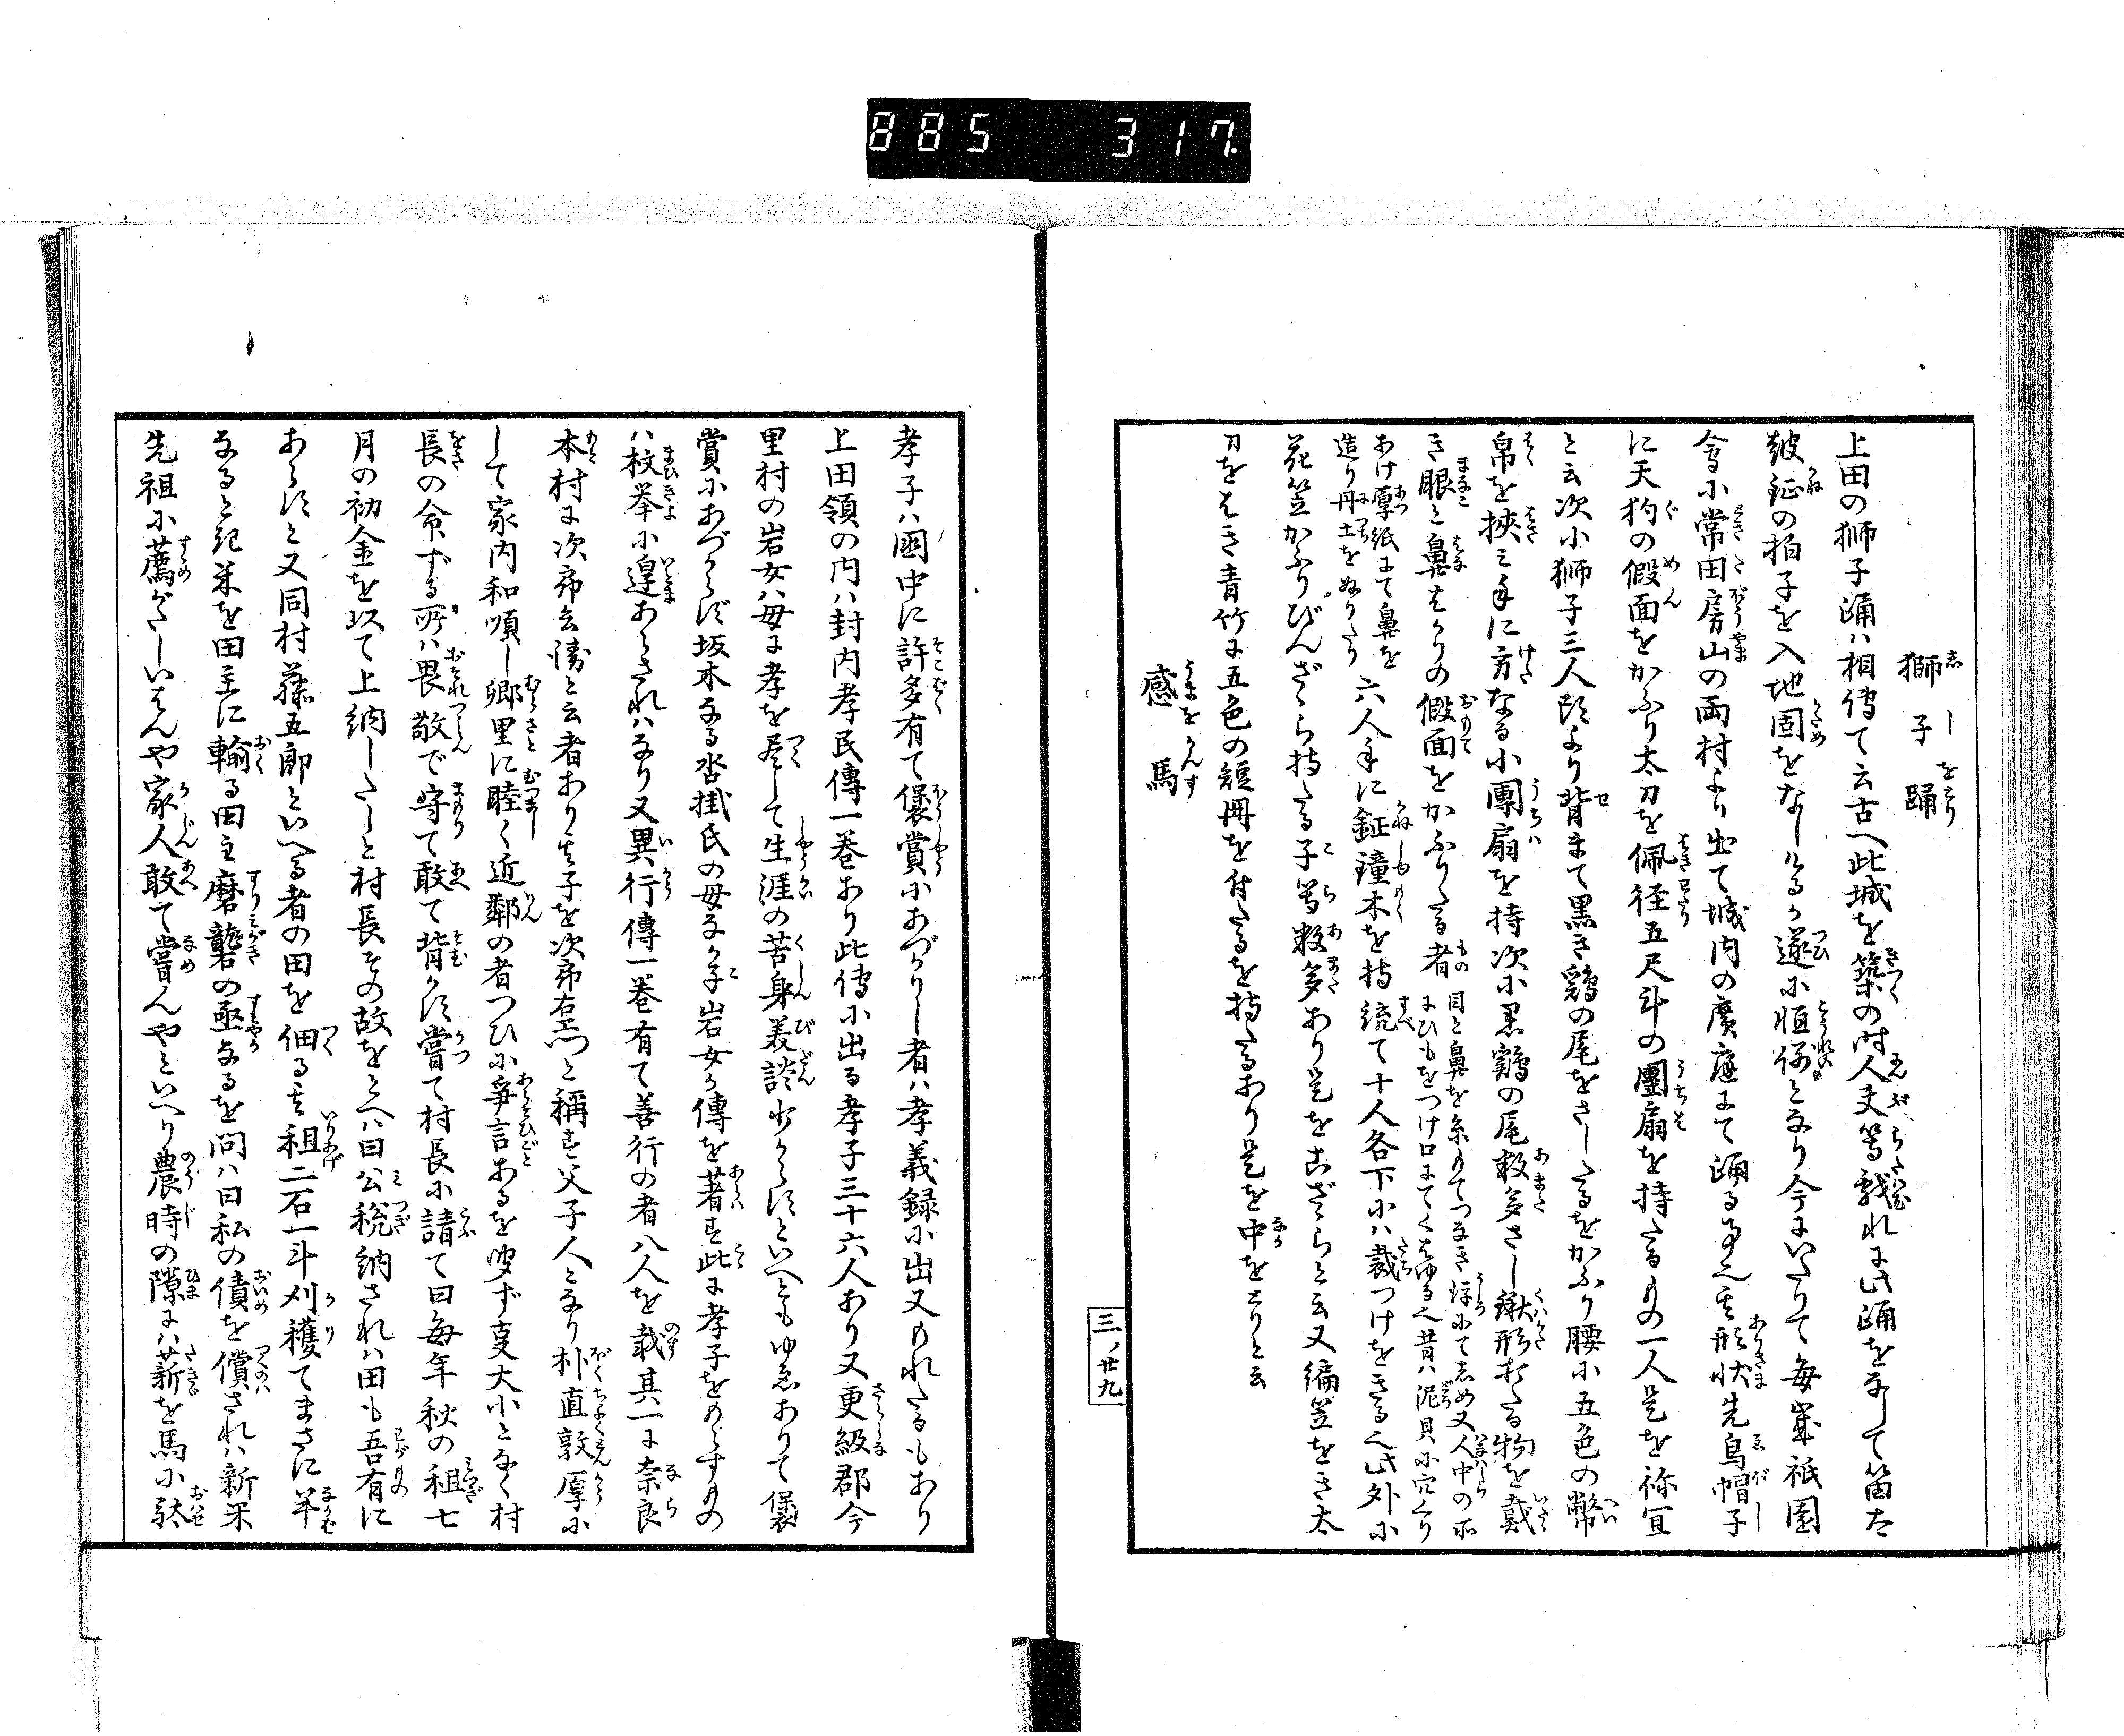 885 317.
獅子踊
上田の獅子踊ハ相傳て云古へ此城を築の時人夫等戯れに此踊をなして笛太
皷鉦の拍子を入地固をなしけるか遂に恒例となり今にいたりて毎歳祇園
會に常田房山の両村より出て城内の廣庭にて踊る事也其形状先烏帽子
に天狗の假面をかふり太刀を佩径五尺斗の團扇を持たるもの一人是を祢宜
と云次に獅子三人頭より背まて黒き鶏の尾をさしたるをかふり腰に五色の幣
帛を挾ミ手に方なる小團扇を持次に黒鶏の尾数多さし鍬形打たる物を戴
き眼と鼻はかりの假面をかふりたる者
目と鼻を糸もてつなき後にてしめ又人中の所
にひもをつけ口にてくはゆる也昔ハ泥貝に穴くり
あけ厚紙にて鼻を
造り丹土をぬりたり
六人手に鉦鐘木を持統て十人各下にハ裁つけをきる也此外に
花笠かふりびんざゝら持たる子等数多あり是をこざゝらと云又編笠をき太
刀をはき青竹に五色の短冊を付たるを持たるあり是を中をとりと云
感馬
三ノ廿九
孝子ハ國中に許多有て襃賞にあづかりし者ハ孝義録に出又もれたるもあり
上田領の内ハ封内孝民傳一巻あり此傳に出る孝子三十六人あり又更級郡今
里村の岩女ハ母に孝を尽して生涯の苦身美談少からすといへともゆゑありて襃
賞にあづからず坂木なる沓掛氏の母なか子岩女か傳を著す此に孝子をもらすもの
ハ枚挙に遑あらされハなり又異行傳一巻有て善行の者八人を載其一に奈良
本村に次帝云清と云者あり其子を次帝右衛門と稱す父子人となり朴直敦厚に
して家内和順し郷里に睦く近鄰の者つひに争言あるを聞ず事大小となく村
長の命ずる所ハ畏敬て守て敢て背かす嘗て村長に請て曰毎年秋の租七
月の初金を以て上納したしと村長その故をとへハ曰公税納されハ田も吾有に
あらすと又同村藤五郎といへる者の田を佃る其租二石一斗刈穫てまさに半
なると紀米を田主に輸る田主磨礱の亟なるを問ハ曰私の債を償されハ新米
先祖に薦がたしいはんや家人敢て嘗んやといへり農時の隙にハ薪を馬に駄